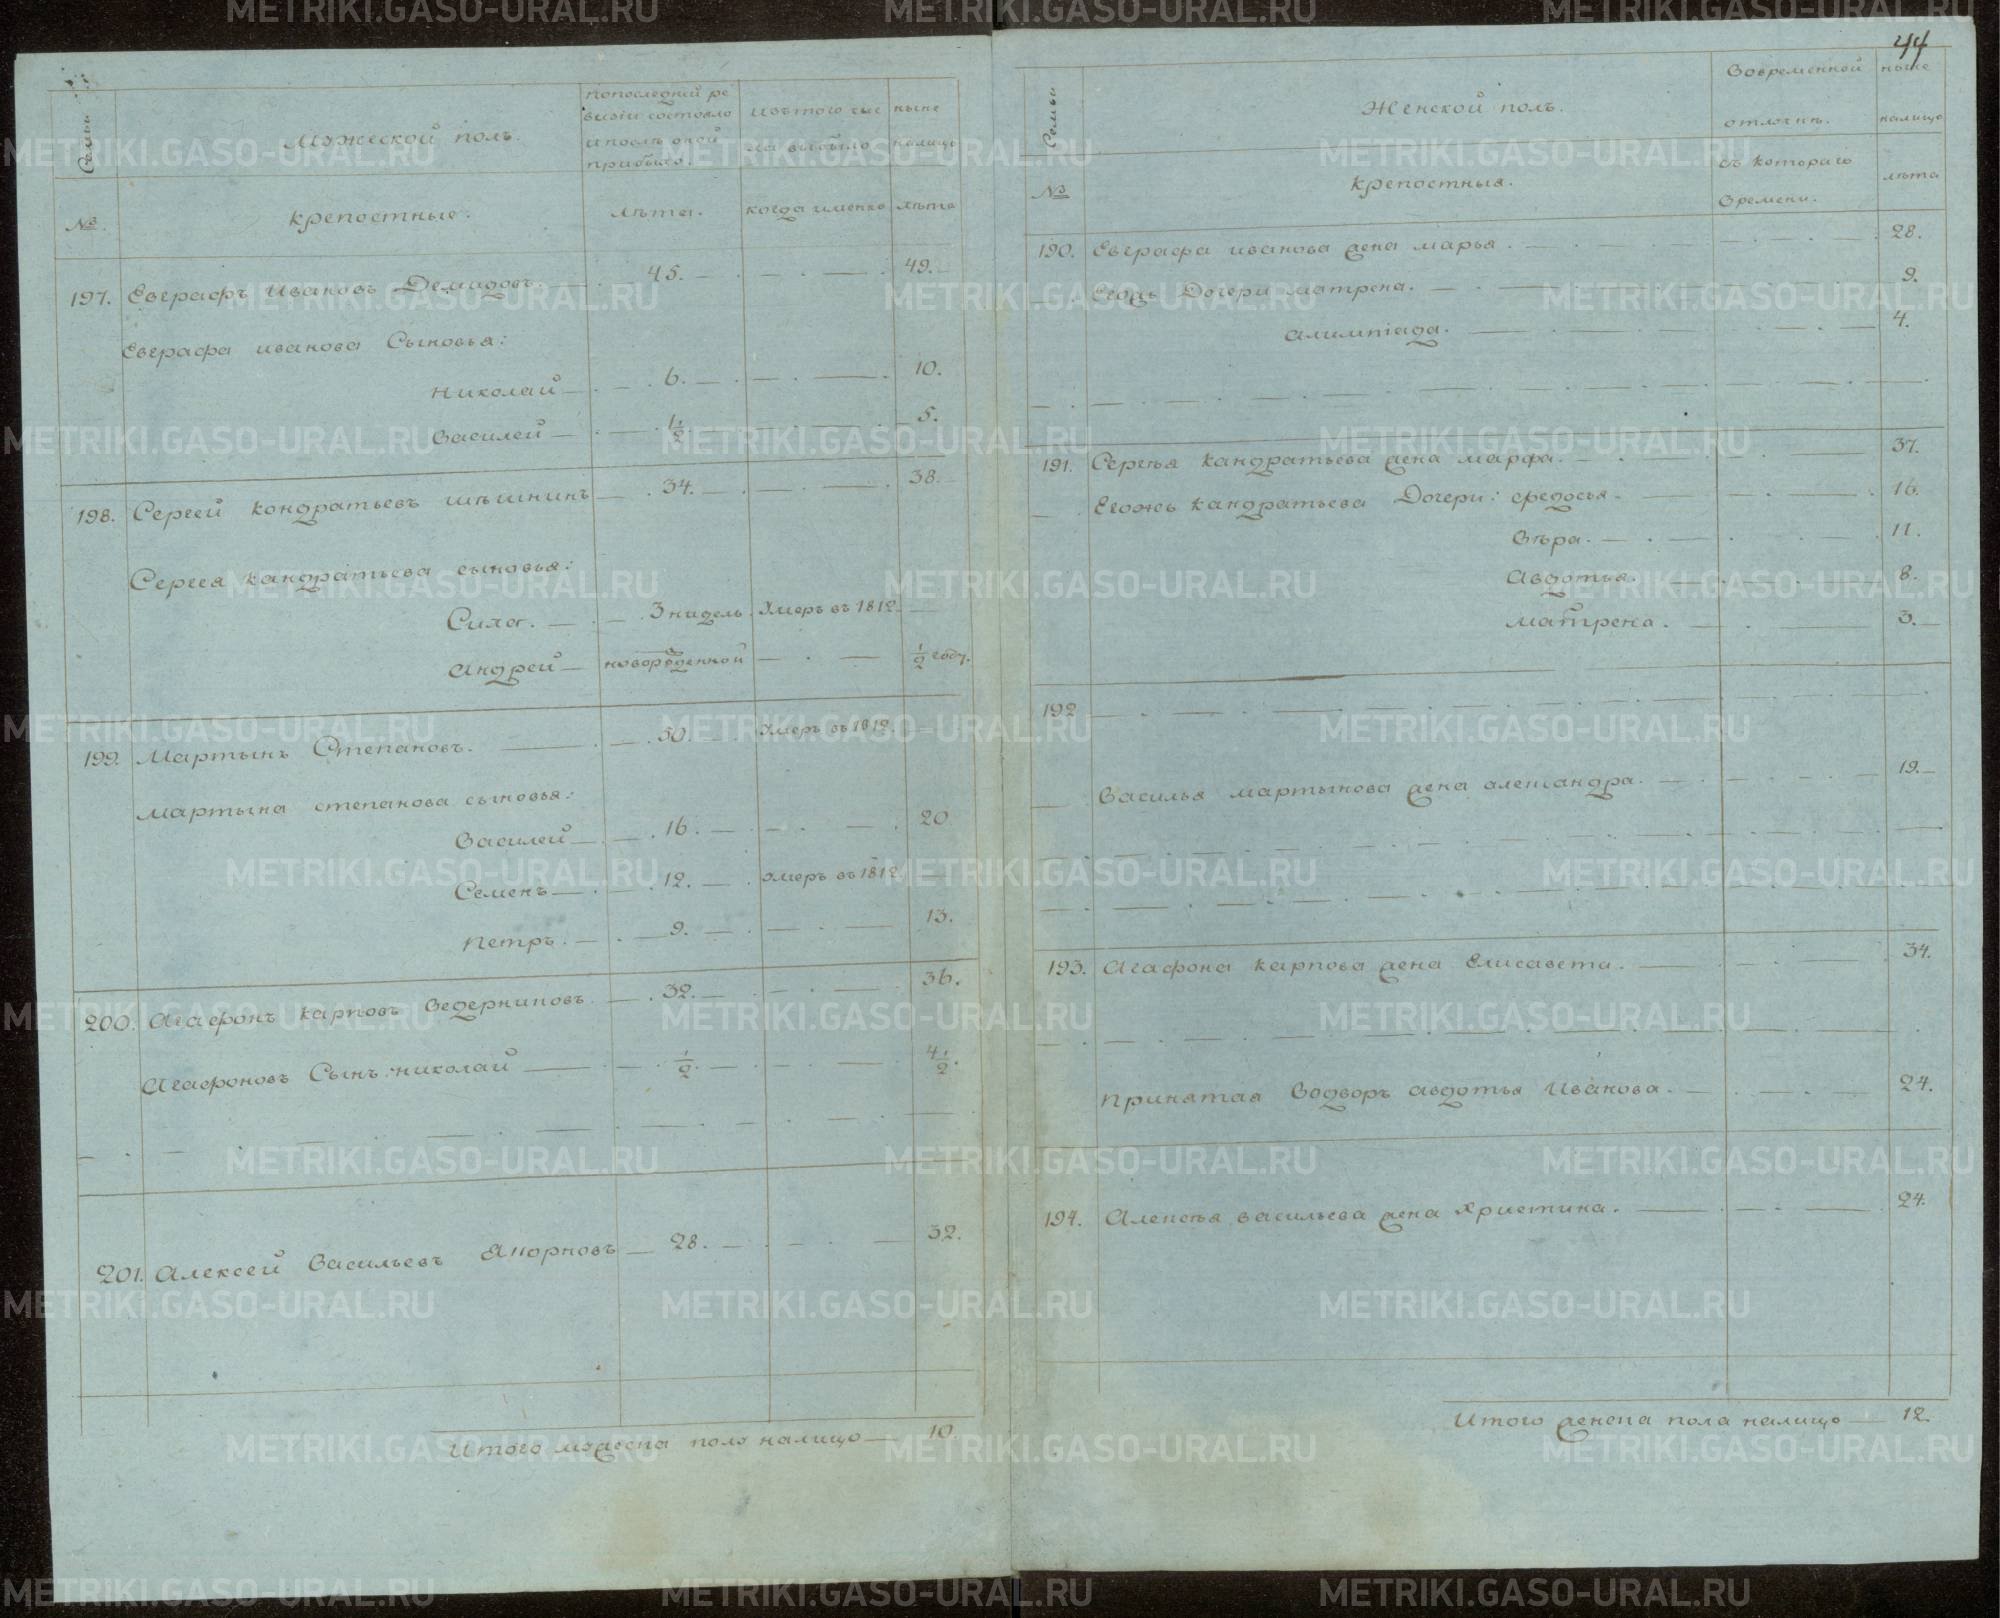 44
Семьи
Мужеской полъ.
По последней ре
визіи состояло
и послѣ оной
прибыло.
Изъ того чис
ла выбыло
ныне
налицо
№
крепостные.
лѣта.
когда именно
лѣта
197. Евграфъ Ивановъ Демидовъ. 45. 49.
Евграфа иванова Сыновья:
Николай 6. 10.
Василей 1/2 5.
198. Сергей кондратьевъ 34. 38.
Сергея кандратьева сыновья:
Сила. 3 нидель. Умеръ въ 1812.
Андрей новорожденной 1/2 году.
199. Мартынъ Степановъ. 50. Умеръ въ 1812.
Мартына степанова сыновья:
Василей 16. 20
Семенъ 12. умеръ въ 1812
Петръ. 9. 13.
200. Агафонъ карповъ Ведерниковъ. 32. 36.
Агафоновъ Сынъ: николай 1/2. 4 1/2.
201. Алексей Васильевъ 28. 32.
Итого мужеска пола налицо 10.
Семьи
Женской полъ.
Вовременной
отлучкѣ.
ныне
налицо
№
крепостныя.
съ котораго
времени.
лѣта
190. Евграфа иванова жена марья. 28.
Егожъ Дочери матрена. 9.
алимпіада. 4.
191. Сергѣя кандратьева жена марфа. 37.
Егожъ кандратьева Дочери: федосья. 16.
Вѣра. 11.
Авдотья. 8.
матрена. 3.
192
Василья мартынова жена александра. 19.
193. Агафона карпова жена Елисавета. 34.
принятая Водворъ авдотья Иванова. 24.
194. Алексѣя васильева жена Христина. 24.
Итого женска пола налицо 12.
METRIKI.GASO-URAL.RU